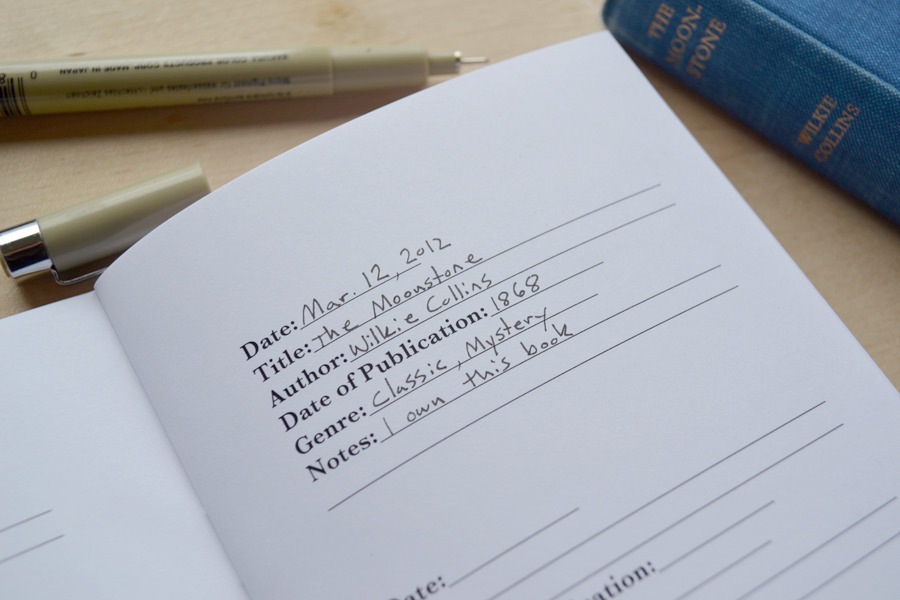 THE
MOON-
STONE
WILKIE
COLLINS
MADE IN JAPAN
0
Date: Mar. 12, 2012
Title: The Moonstone
Author: Wilkie Collins
Date of Publication: 1868
Genre: Classic, Mystery
Notes: I own this book